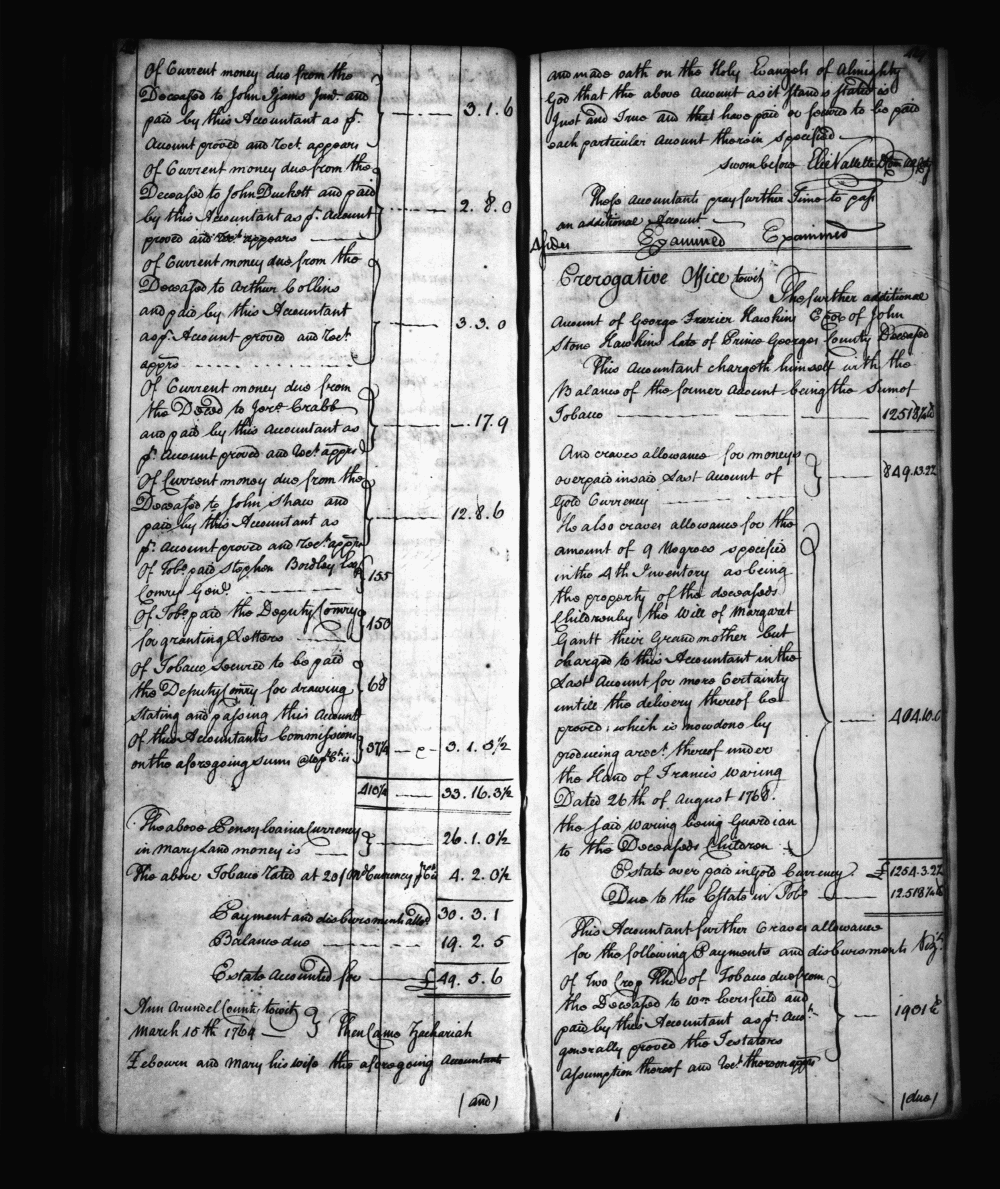 Of Current money due from the
Deceased to John Ijams Junr. and
paid by this Accountant as pr. 3.1.6
Account proved and Rect. appears
Of Current money due from the
Deceased to John Duckett and paid
by this Accountant as pr. Account 2.8.0
proved and Rect. appears
Of Current money due from the
Deceased to Arthur Collins
and paid by this Accountant
as pr. Account proved and Rect. 3.3.0
apprs
Of Current money due from
the Deced to Jere. Crabb
and paid by this Accountant as .17.9
pr. Account proved and Rect. apprs
Of Current money due from the
Deceased to John Shaw and
paid by this Accountant as 12.8.6
pr. Account proved and Rect. apprs
Of Tobo. paid Stephen Bordley
Comry Genl. 155
Of Tobo. paid the Deputy Comry
for granting Letters 150
Of Tobacco secured to be paid
the Deputy Comry for drawing 68
Stating and passing this Account
Of this Accountants Commission
on the aforegoing sums 37¼ 3.1.0½
410¼ 33.16.3½
The above Pensylvania Currency
in Maryland money is 26.1.0½
The above Tobacco rated at 20/ Currency 4.2.0½
Payment and disbursments allod. 30.3.1
Balance due 19.2.5
Estate Accounted for £49.5.6
Ann Arundel County towit
March 15th 1769 Then Came Zachariah
Lebowen and Mary his wife the aforegoing Accountants
(and)
and made oath on the Holy Evangels of Almighty
God that the above Account as it stands stated is
Just and True and that have paid or secured to be paid
each particular Account therein specified
sworn before Elie Vallette
These Accountants pray further Time to pass
an additional Account
Examined Examined
Prerogative Office towit
The further additional
Account of George Frazier Hawkins Exor of John
Stone Hawkins late of Prince Georges County Deceased
This Accountant chargeth himself with the
Balance of the former Account being the Sum of
Tobacco 12518¼
And craves allowance for moneys
overpaid in said Last Account of 849.13.22
Gold Currency
He also craves allowance for the
amount of 9 Negroes specified
in the 4th Inventory as being
the property of the deceaseds
Children by the Will of Margaret
Gantt their Grandmother but
charged to this Accountant in the
Last Account for more Certainty
untill the delivery thereof be
proved; which is now done by 404.10.0
producing a rect. thereof under
the Hand of Francis Waring
Dated 26th of August 1768.
the said Waring being Guardian
to the Deceaseds Children
Estate over paid in Gold Currency £1254.3.22
Due to the Estate in Tobo 12518¼
This Accountant further Craves allowance
for the following Payments and disbursments Vizt.
Of Two Crop Hhds of Tobacco due from
the Deceased to Wm Eversfield and
paid by this Accountant as pr. Acct. 1901
generally proved the Testators
Assumption thereof and rect. thereon apprs
(due)